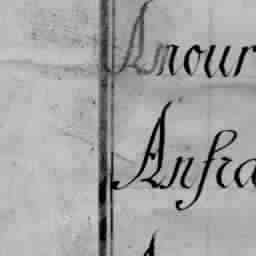 Amour
Anfra